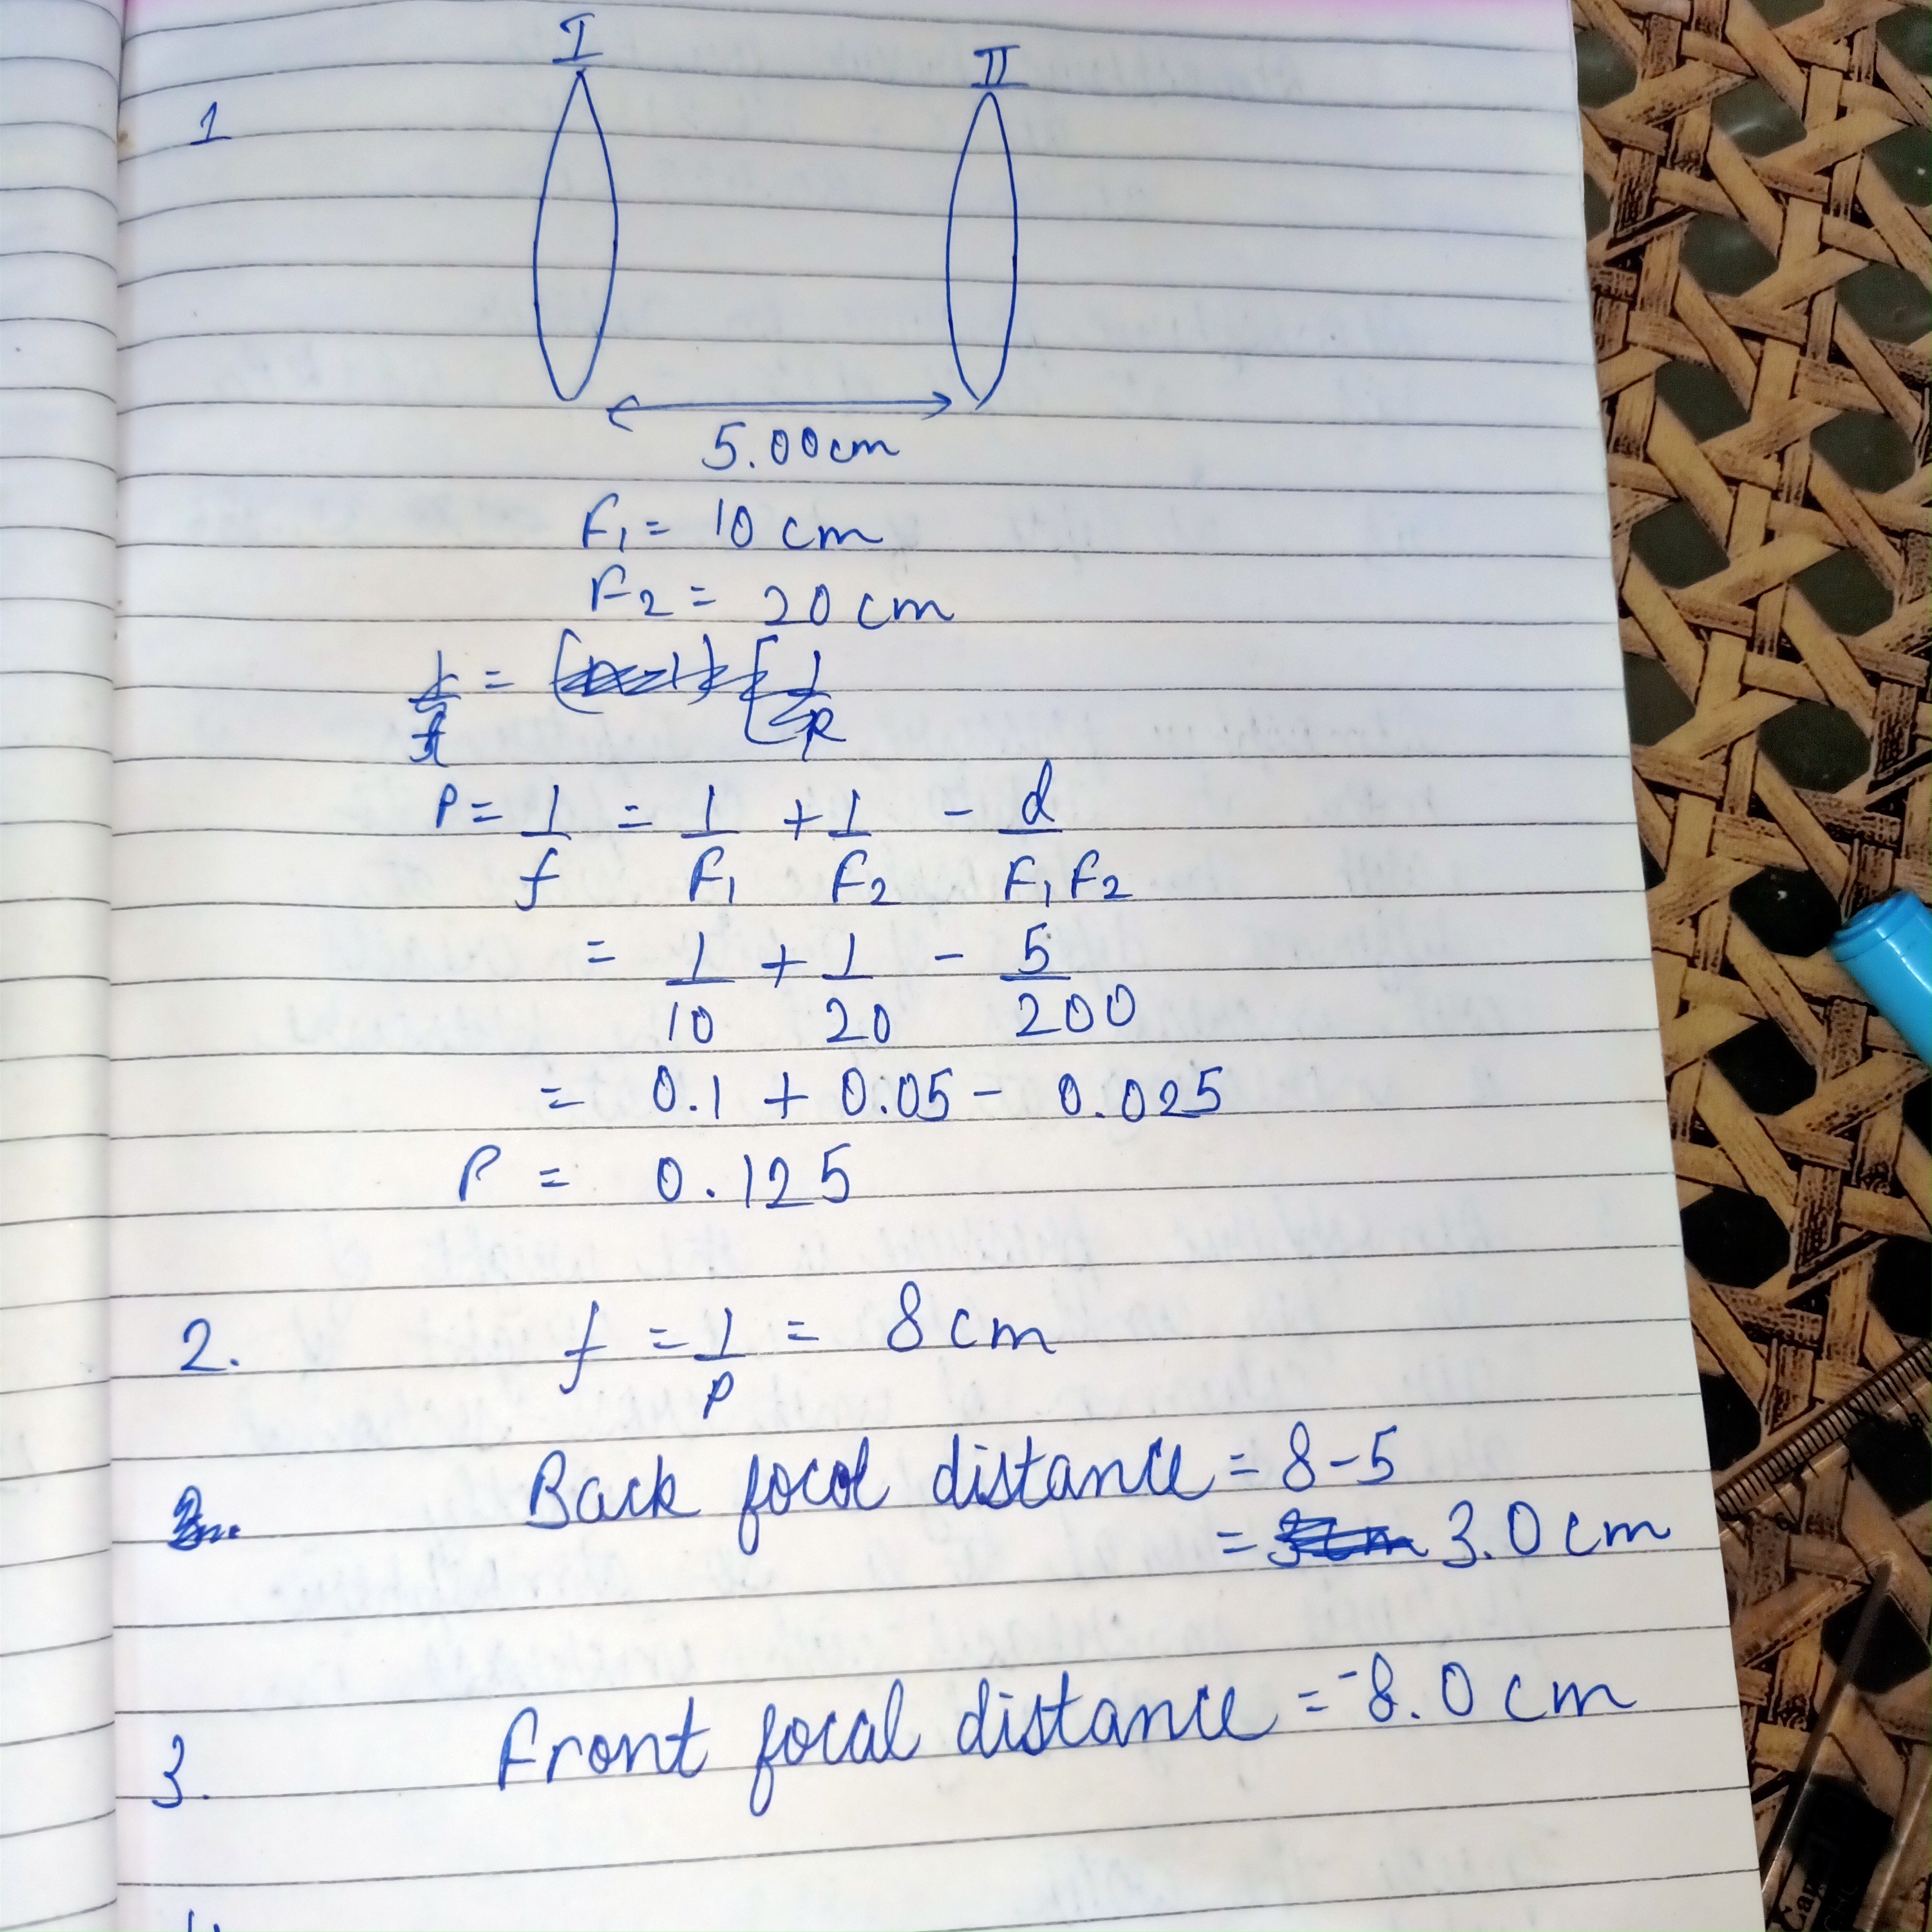 I
II
1
5.00cm
F₁ = 10 cm
F₂ = 20 cm
1/f =
P = 1/f = 1/F₁ + 1/F₂ - d/F₁F₂
= 1/10 + 1/20 - 5/200
= 0.1 + 0.05 - 0.025
P = 0.125
2. f = 1/P = 8 cm
Back focal distance = 8-5
= 3.0 cm
3. Front focal distance = -8.0 cm